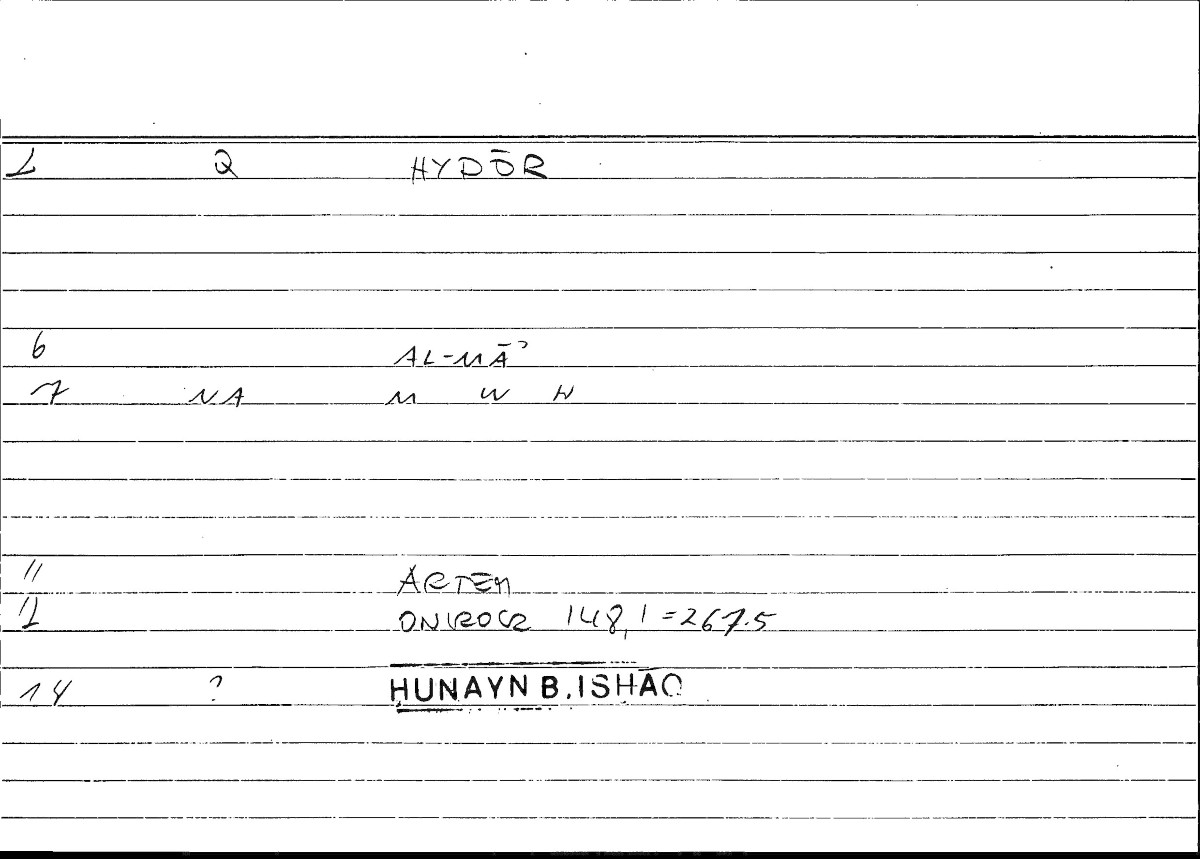 1 Q HYDŌR
6 AL-MĀʾ
7 NA M W H
11 ARTEM
12 ONIROCR 148,1=267.5
14 ? ḤUNAYN B. ISḤĀQ